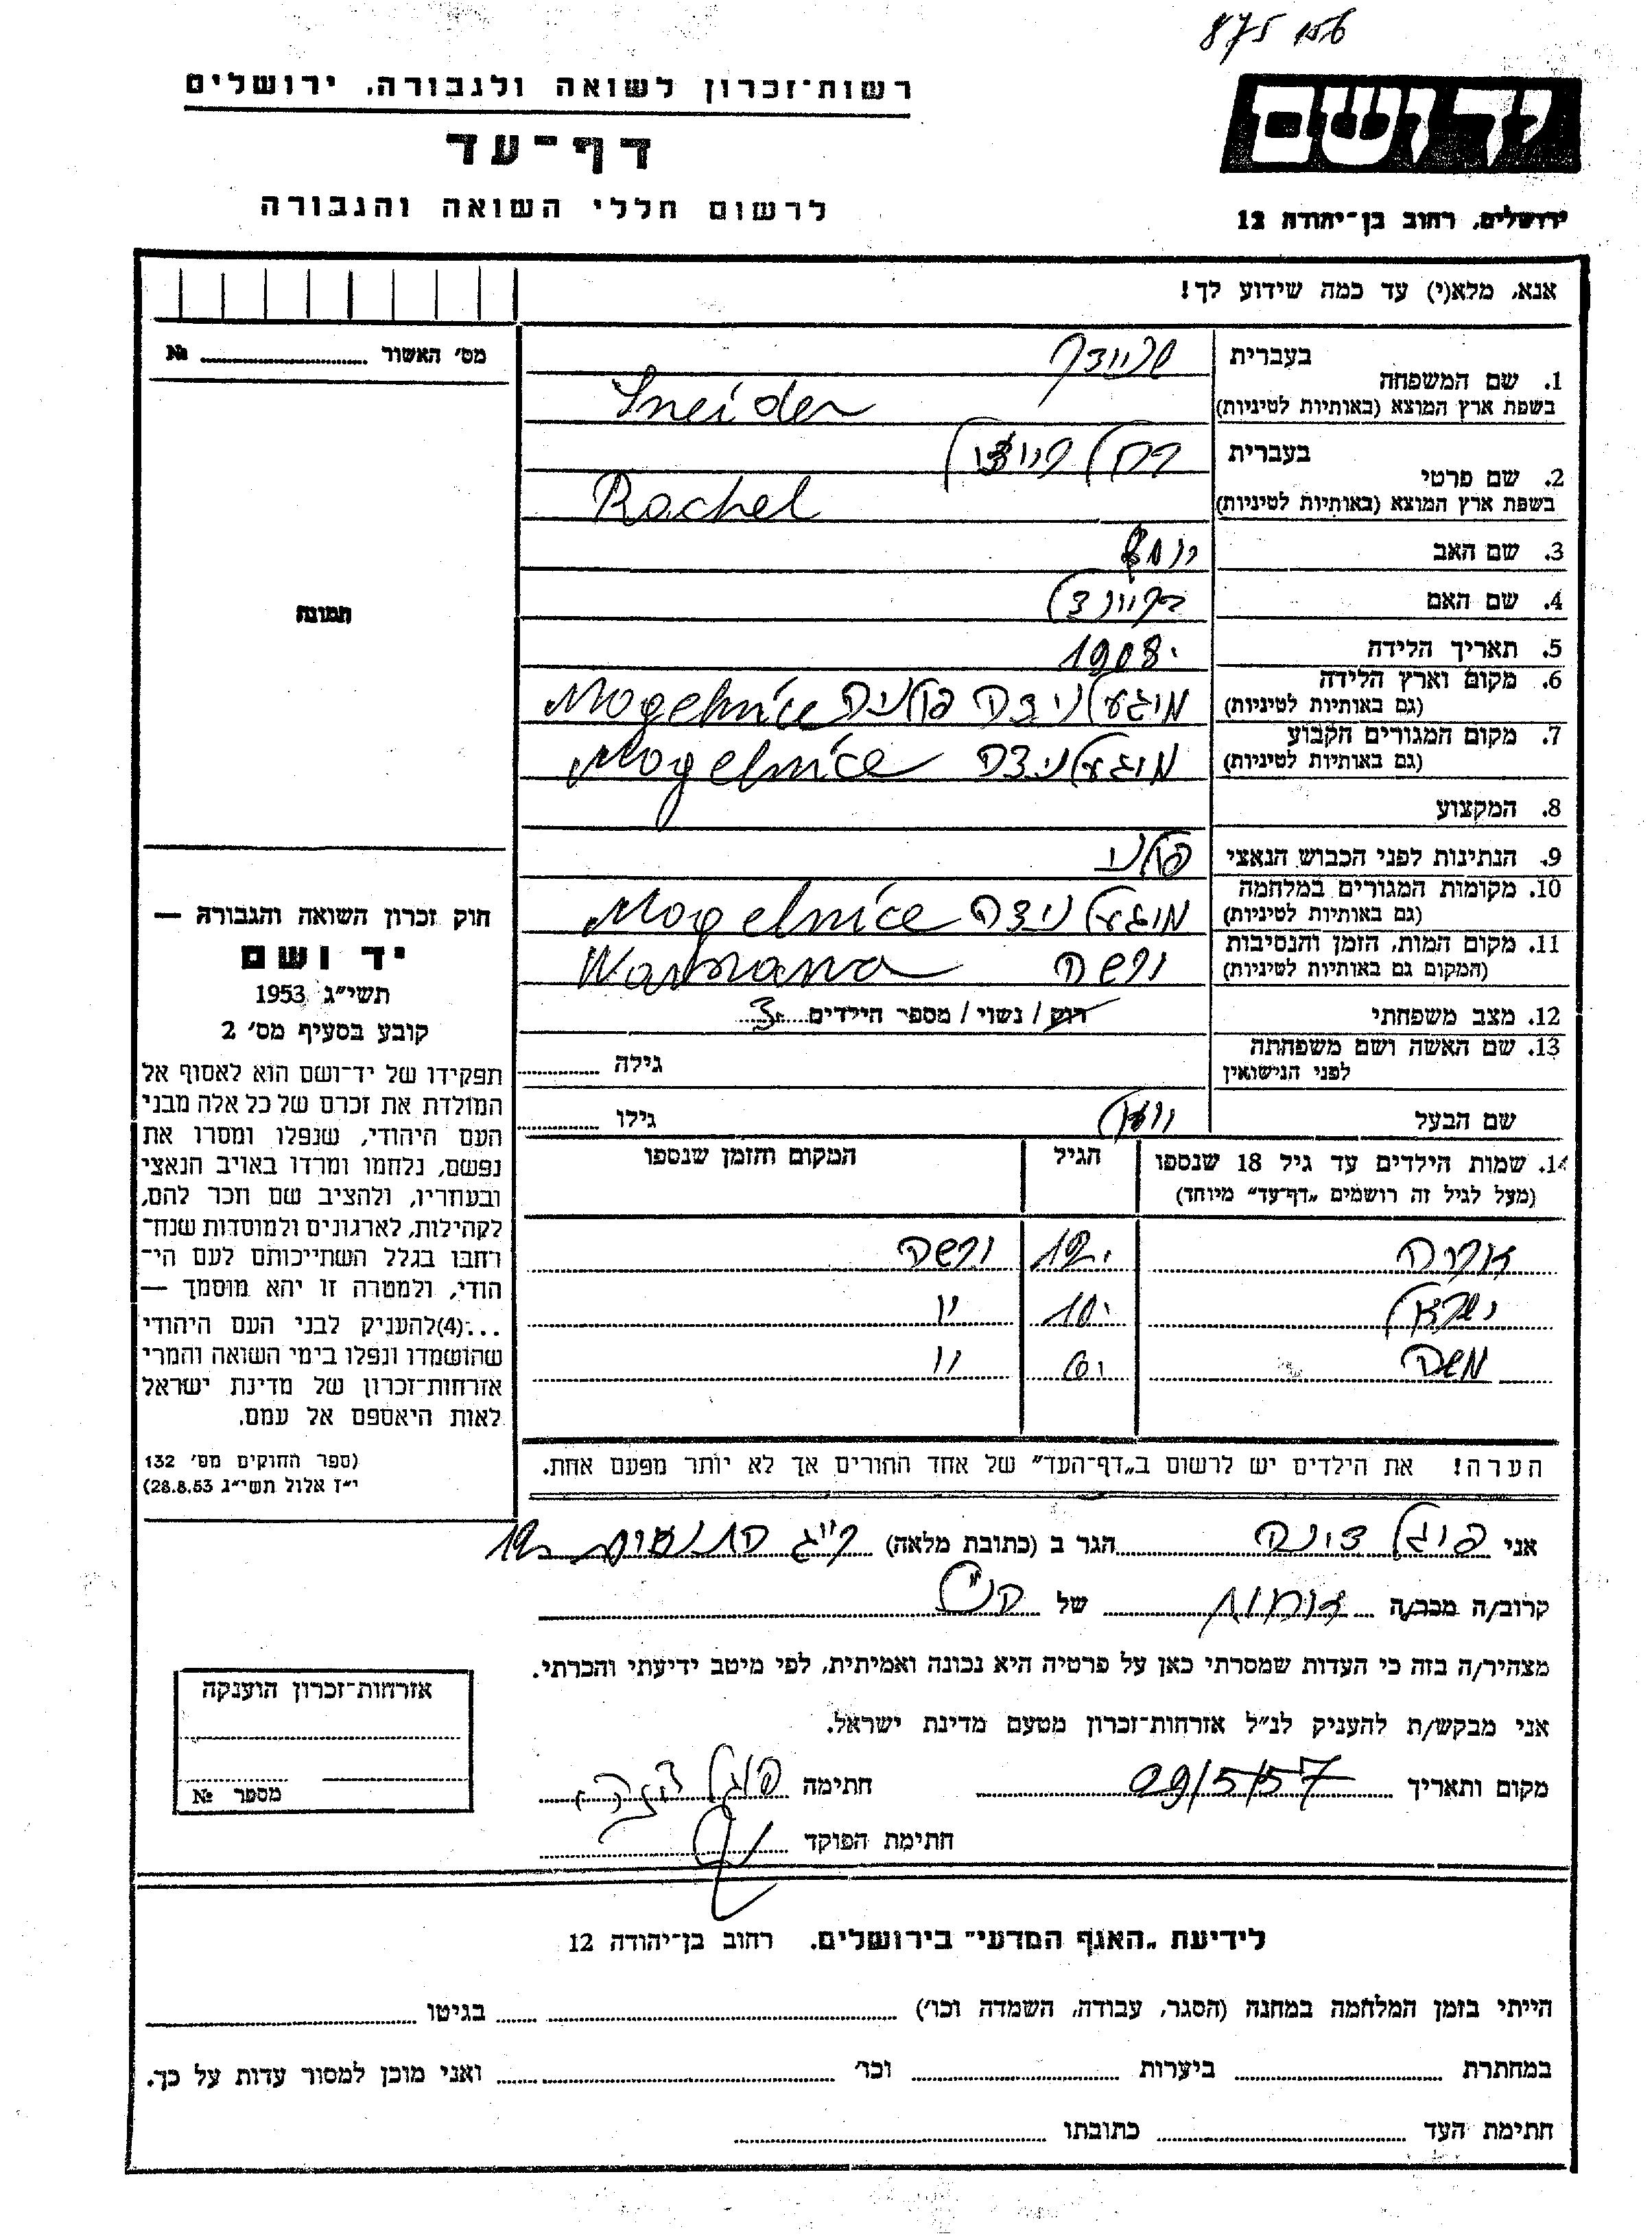 875 156
רשות־זכרון לשואה ולגבורה, ירושלים
דף־עד
לרשום חללי השואה והגבורה
יד ושם
ירושלים, רחוב בן־יהודה 12
אנא, מלא(י) עד כמה שידוע לך!
מס׳ האשור № ........
תמונה
1. שם המשפחה בעברית שניידר
בשפת ארץ המוצא (באותיות לטיניות) Sneider
2. שם פרטי בעברית רחל
בשפת ארץ המוצא (באותיות לטיניות) Rachel
3. שם האב
4. שם האם
5. תאריך הלידה 1908
6. מקום וארץ הלידה (גם באותיות לטיניות) מוגעלניצה פולניה Mogelnice
7. מקום המגורים הקבוע (גם באותיות לטיניות) מוגעלניצה Mogelnice
8. המקצוע
9. הנתינות לפני הכבוש הנאצי פולני
10. מקומות המגורים במלחמה (גם באותיות לטיניות) מוגעלניצה Mogelnice
11. מקום המות, הזמן והנסיבות (המקום גם באותיות לטיניות) ורשה Warszawa
12. מצב משפחתי רווק / נשוי / מספר הילדים 3
13. שם האשה ושם משפחתה לפני הנישואין גילה ........
שם הבעל גילו ........
14. שמות הילדים עד גיל 18 שנספו (מעל לגיל זה רושמים „דף־עד" מיוחד) הגיל המקום והזמן שנספו
12 ורשה
ישראל 10 "
משה 6 "
הערה! את הילדים יש לרשום ב„דף־העד" של אחד ההורים אך לא יותר מפעם אחת.
חוק זכרון השואה והגבורה —
יד ושם
תשי״ג 1953
קובע בסעיף מס׳ 2
תפקידו של יד־ושם הוא לאסוף אל
המולדת את זכרם של כל אלה מבני
העם היהודי, שנפלו ומסרו את
נפשם, נלחמו ומרדו באויב הנאצי
ובעוזריו, ולהציב שם וזכר להם,
לקהילות, לארגונים ולמוסדות שנח־
רבו בגלל השתייכותם לעם הי־
הודי, ולמטרה זו יהא מוסמך —
...(4) להעניק לבני העם היהודי
שהושמדו ונפלו בימי השואה והמרי
אזרחות־זכרון של מדינת ישראל
לאות היאספם אל עמם.
(ספר החוקים מס׳ 132
י״ז אלול תשי״ג 28.8.53)
אני פוגל צינה הגר ב (כתובת מלאה) 12
קרוב/ה מכר/ה אחות של הנ״ל
מצהיר/ה בזה כי העדות שמסרתי כאן על פרטיה היא נכונה ואמיתית, לפי מיטב ידיעתי והכרתי.
אני מבקש/ת להעניק לנ״ל אזרחות־זכרון מטעם מדינת ישראל.
מקום ותאריך 29/5/57 חתימה פוגל צינה
חתימת הפוקד
אזרחות־זכרון הוענקה
מספר №
לידיעת „האגף המדעי" בירושלים. רחוב בן־יהודה 12
הייתי בזמן המלחמה במחנה (הסגר, עבודה, השמדה וכו׳) ........ בגיטו ........
במחתרת ........ ביערות ........ וכו׳ ........ ואני מוכן למסור עדות על כך.
חתימת העד ........ כתובתו ........